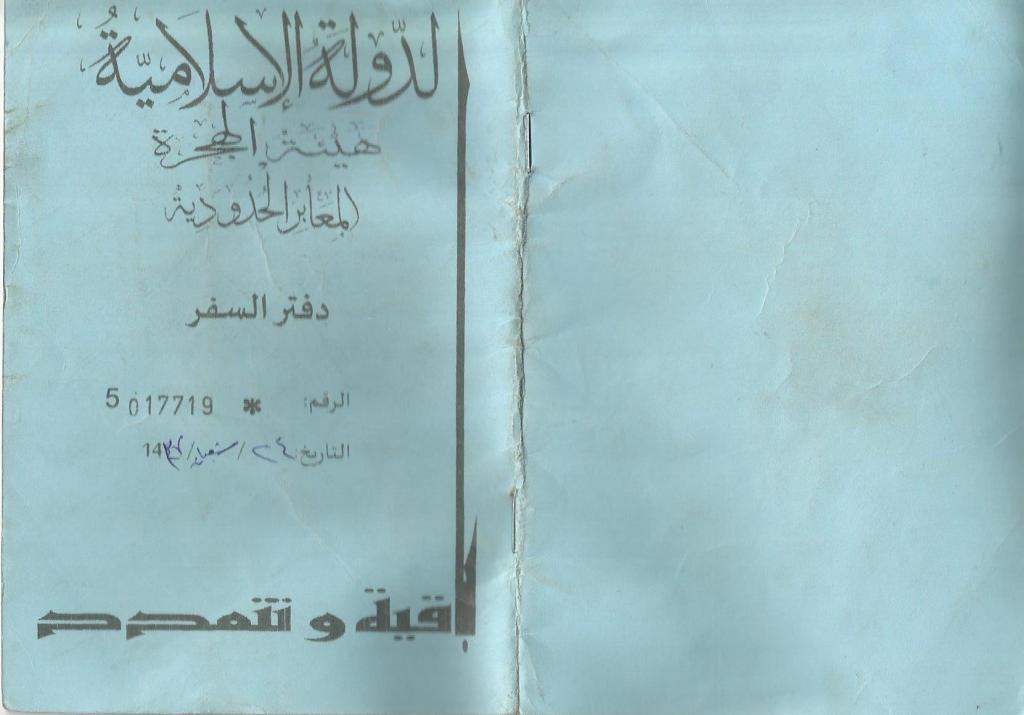 الدّولة الإسلاميّة
هيئة الهجرة
المعابر الحدودية
دفتر السفر
الرقم: * 017719 5
التاريخ: ٢٤ / شعبان / 14٣٧
باقية و تتمدد